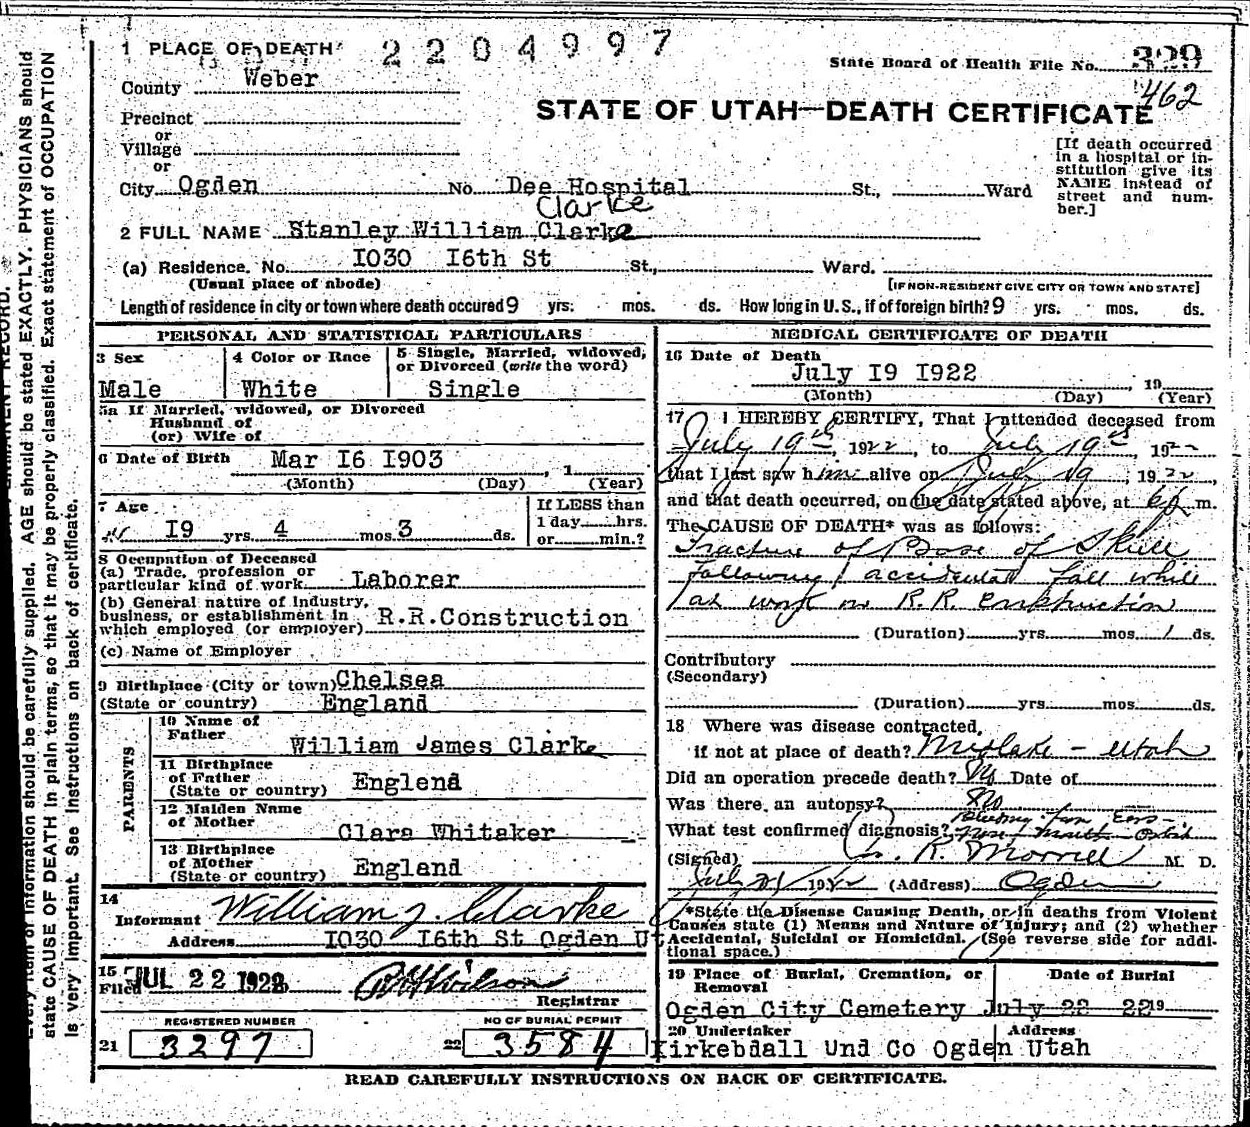 1 PLACE OF DEATH
2204997
State Board of Health File No. 329
462
County Weber
STATE OF UTAH—DEATH CERTIFICATE
Precinct
or
Village
or
City Ogden No. Dee Hospital St., Ward
[If death occurred in a hospital or institution give its NAME instead of street and number.]
Clarke
2 FULL NAME Stanley William Clarke
(a) Residence. No. I030 I6th St St., Ward.
(Usual place of abode) [IF NON-RESIDENT GIVE CITY OR TOWN AND STATE]
Length of residence in city or town where death occured 9 yrs. mos. ds. How long in U.S., if of foreign birth? 9 yrs. mos. ds.
PERSONAL AND STATISTICAL PARTICULARS
3 Sex
Male
4 Color or Race
White
5 Single, Married, widowed,
or Divorced (write the word)
Single
5a If Married, widowed, or Divorced
Husband of
(or) Wife of
6 Date of Birth Mar I6 I903, 1
(Month) (Day) (Year)
7 Age
I9 yrs. 4 mos. 3 ds.
If LESS than
1 day hrs.
or min.?
8 Occupation of Deceased
(a) Trade, profession or
particular kind of work. Laborer
(b) General nature of industry,
business, or establishment in
which employed (or employer) R.R.Construction
(c) Name of Employer
9 Birthplace (City or town) Chelsea
(State or country) England
PARENTS
10 Name of
Father William James Clarke
11 Birthplace
of Father
(State or country) Englend
12 Maiden Name
of Mother Clara Whitaker
13 Birthplace
of Mother
(State or country) England
14
Informant William J. Clarke
Address I030 I6th St Ogden Ut
15
Filed JUL 22 1922
Wilson
Registrar
REGISTERED NUMBER
21 3297
NO OF BURIAL PERMIT
22 3584
MEDICAL CERTIFICATE OF DEATH
16 Date of Death
July I9 I922, 19
(Month) (Day) (Year)
17 I HEREBY CERTIFY, That I attended deceased from
July 19th, 1922, to July 19th, 1922
that I last saw him alive on July 19, 1922,
and that death occurred, on the date stated above, at 6 p m.
The CAUSE OF DEATH* was as follows:
Fracture of Base of Skull
following accidental fall while
at work on R.R. Construction
(Duration) yrs. mos. 1 ds.
Contributory
(Secondary)
(Duration) yrs. mos. ds.
18 Where was disease contracted,
if not at place of death? Midlake - Utah
Did an operation precede death? No Date of
Was there an autopsy? No
What test confirmed diagnosis? Bleeding from Ears -
Nose Mouth
(Signed) R. Morrell M. D.
July 21, 1922 (Address) Ogden
*State the Disease Causing Death, or in deaths from Violent
Causes state (1) Means and Nature of Injury; and (2) whether
Accidental, Suicidal or Homicidal. (See reverse side for addi-
tional space.)
19 Place of Burial, Cremation, or
Removal
Date of Burial
Ogden City Cemetery July 22 22 19
20 Undertaker Address
Kirkebdall Und Co Ogden Utah
READ CAREFULLY INSTRUCTIONS ON BACK OF CERTIFICATE.
PERMANENT RECORD.
Every item of information should be carefully supplied. AGE should be stated EXACTLY. PHYSICIANS should
state CAUSE OF DEATH in plain terms, so that it may be properly classified. Exact statement of OCCUPATION
is very important. See instructions on back of certificate.